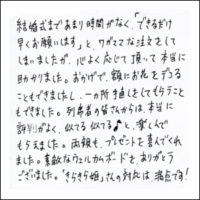 結婚式まであまり時間がなく、「できるだけ
早くお願いします」と、ワガママな注文をして
しまいましたが、心よく応じて頂いて本当に
助かりました。おかげで、額にお花をデコる
こともできましたし、一カ所手直しをしてもらうこと
もできました。列席者の皆さんからは、本当に
評判がよく、似てる似てる♪と、楽しんで
もらえました。両親も、プレゼントを喜んでくれ
ました。素敵なウェルカムボードを、ありがとう
ございました。「きらきら姫」さんの対応は、満点です!